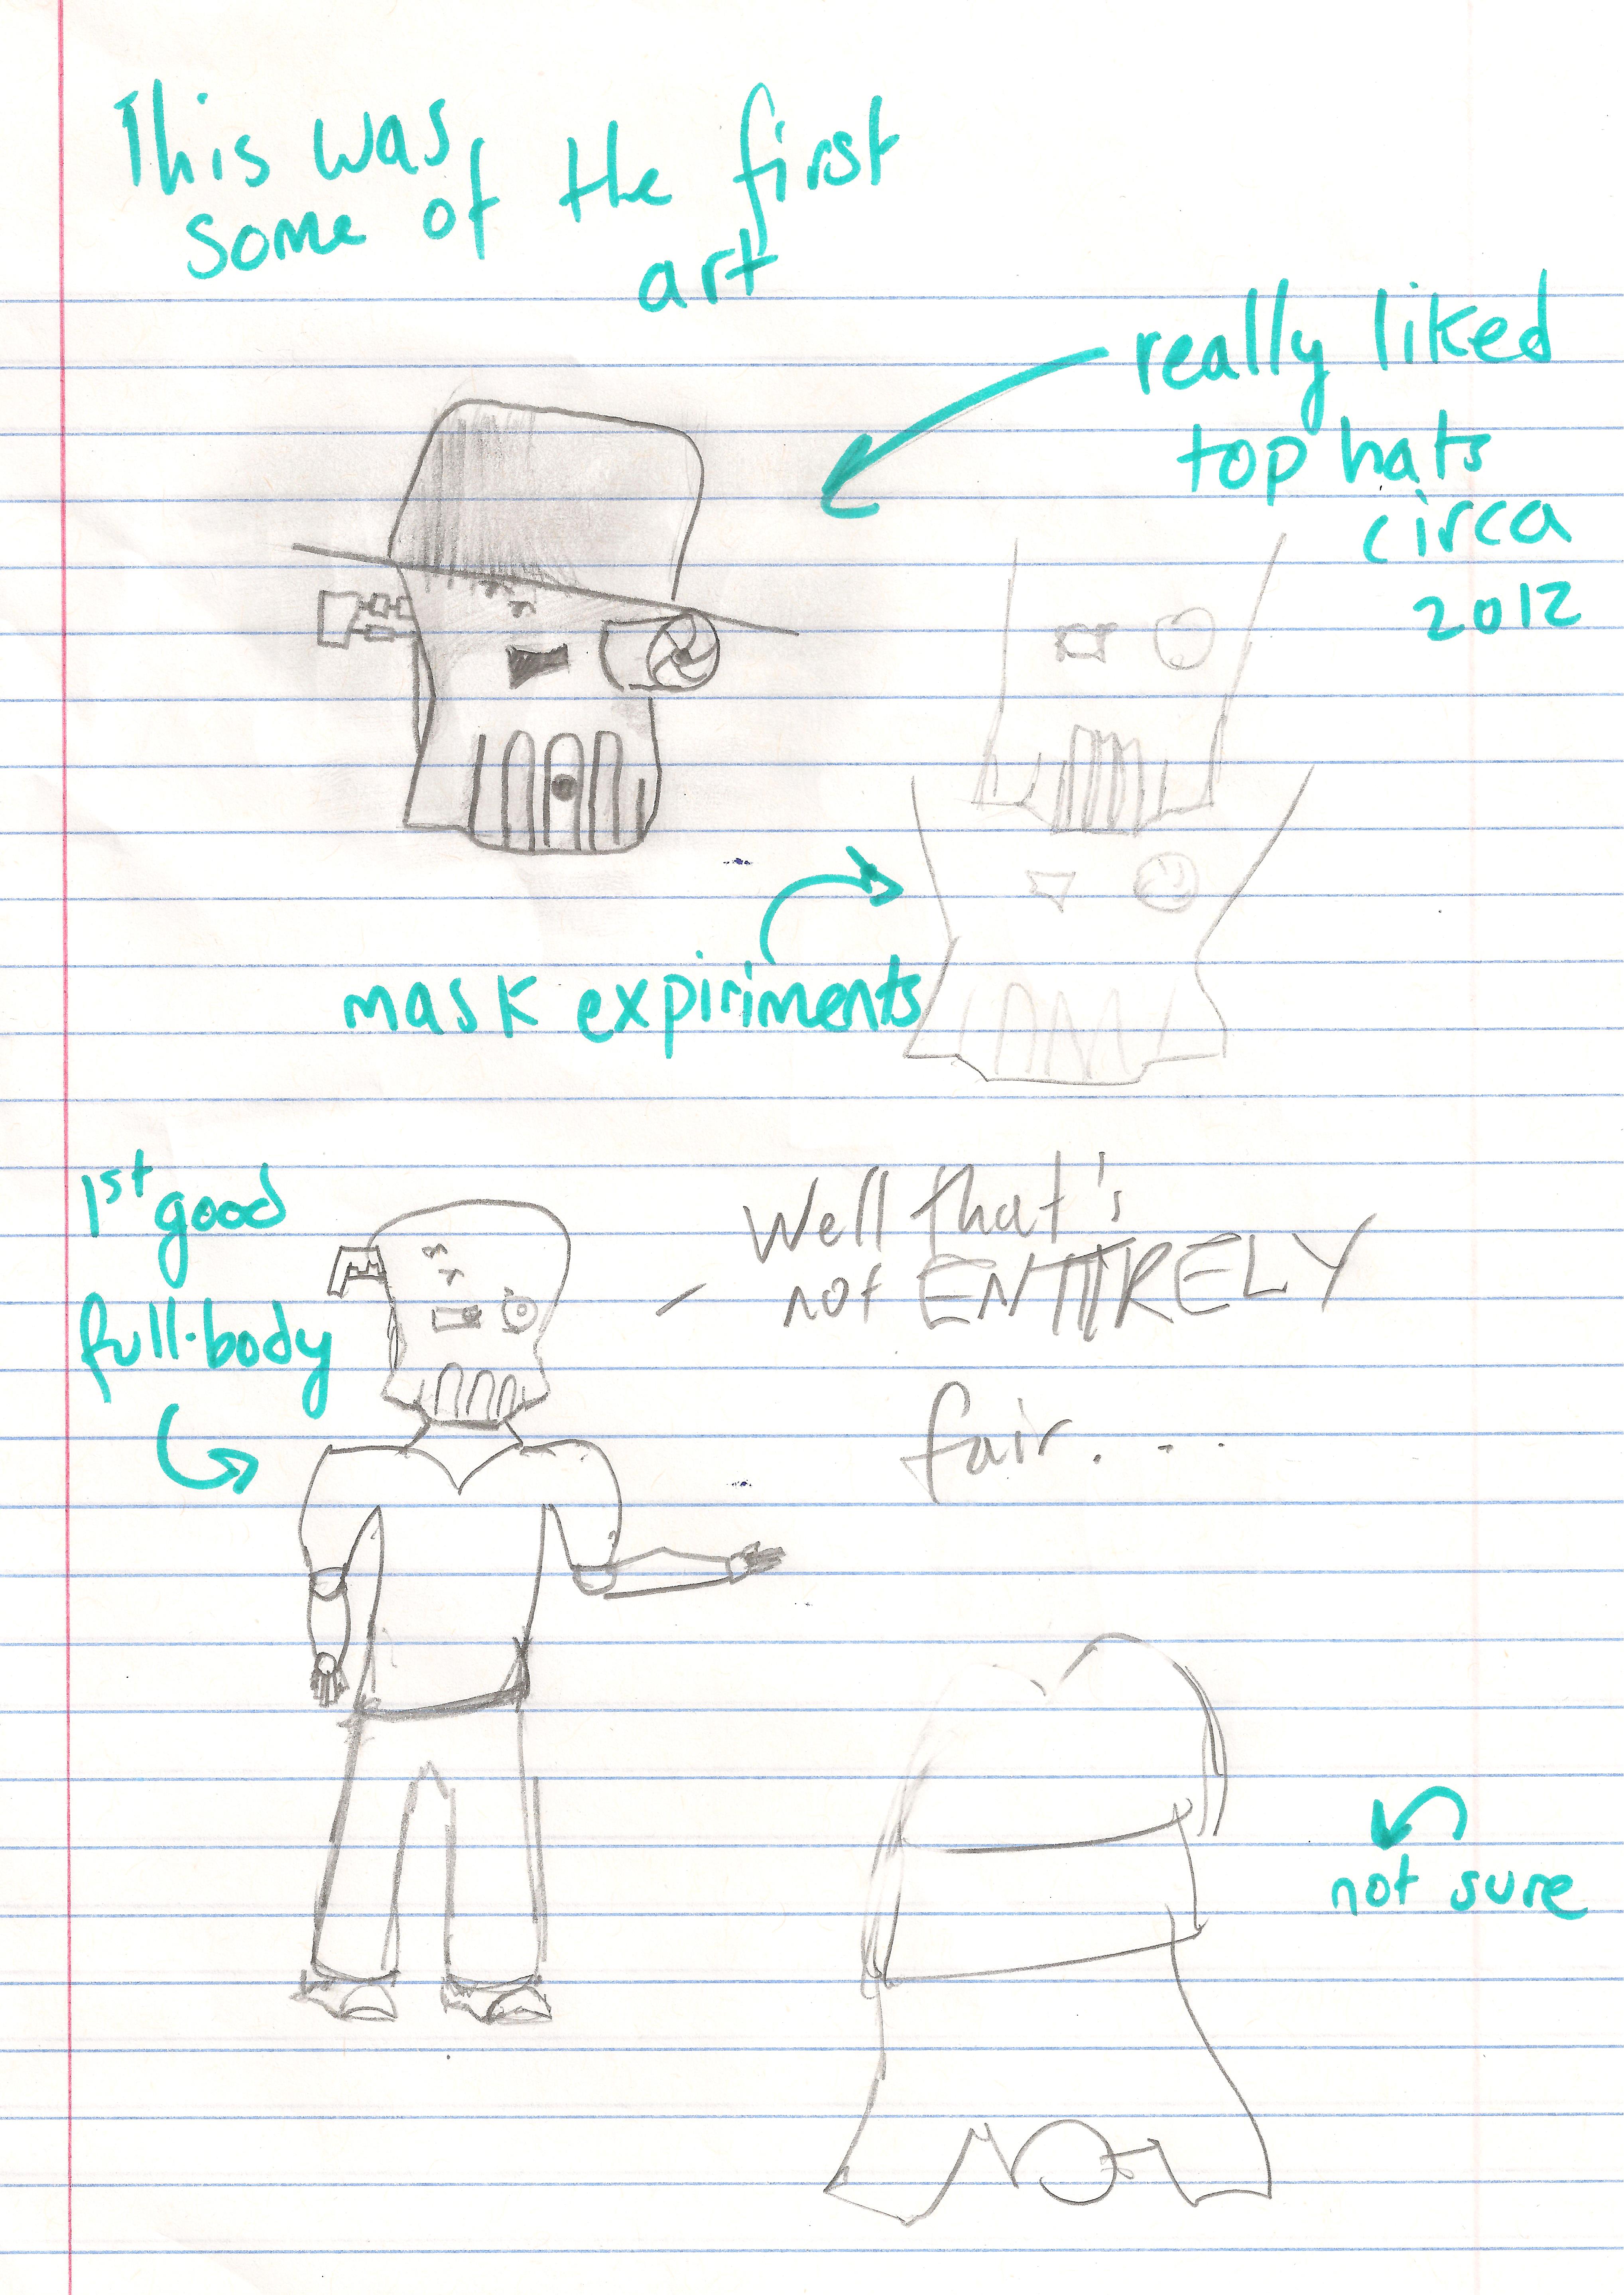 This was
some of the first
art
really liked
top hats
circa
2012
mask expiriments
1st good
full-body
Well that's
not ENTIRELY
fair....
not sure